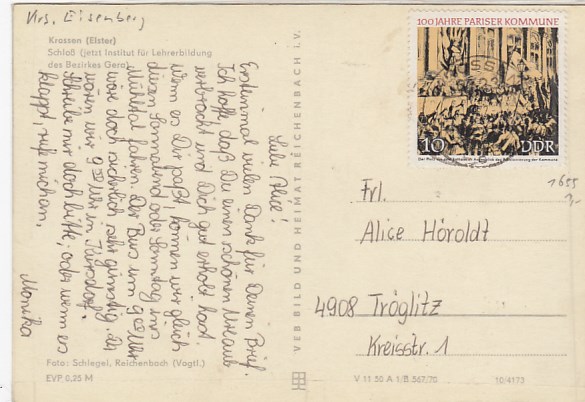 Krs. Eisenberg
Krossen (Elster)
Schloß (jetzt Institut für Lehrerbildung
des Bezirkes Gera)
Liebe Alice!
Erst einmal vielen Dank für Deinen Brief.
Ich hoffe, daß Du einen schönen Urlaub
verbracht und Dich gut erholt hast.
Wenn es Dir paßt, können wir gleich
diesen Sonnabend oder Sonntag ins
Mühltal fahren. Der Bus um 9 Uhr
wäre doch sicherlich sehr günstig. Da
wären wir 9 Uhr in
Schreibe mir doch bitte, oder wenn es
klappt, rufe mich an.
Monika
Foto: Schlegel, Reichenbach (Vogtl.)
EVP 0,25 M
VEB BILD UND HEIMAT REICHENBACH i. V.
100 JAHRE PARISER KOMMUNE
10 DDR
1655
Frl.
Alice Höroldt
4908 Tröglitz
Kreisstr. 1
V 11 50 A 1/B 567/70
10/4173